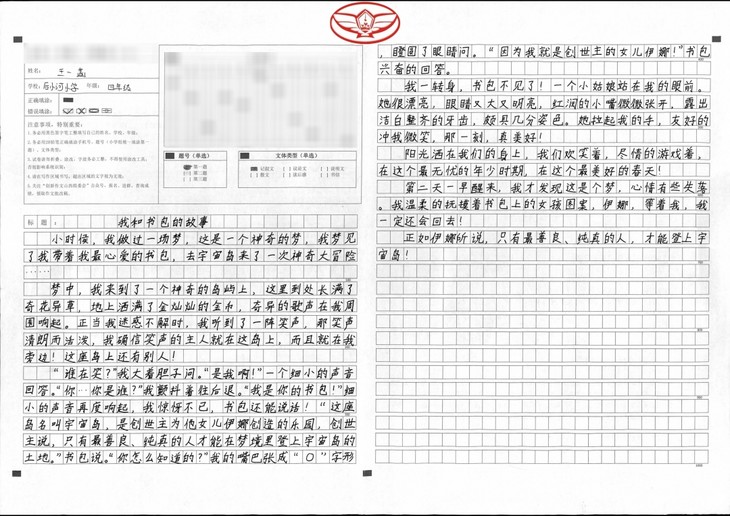 姓名：
学校： 年级：四年级
正确填涂：
错误填涂：
注意事项，特别重要：
题号（单选）
文体类型（单选）
第一题
第二题
第三题
标 题：我和书包的故事
小时候，我做过一场梦，这是一个神奇的梦，我梦见
了我带着我最心爱的书包，去宇宙岛来了一次神奇大冒险
……
梦中，我来到了一个神奇的岛屿上，这里到处长满了
奇花异草，地上洒满了金灿灿的金币，奇异的歌声在我周
围响起。正当我迷惑不解时，我听到了一阵笑声，那笑声
清朗而活泼，我确信笑声的主人就在这岛上，而且就在我
旁边！这座岛上还有别人！
“谁在笑？”我大着胆子问。“是我啊！”一个细小的声音
回答。“你…你是谁？”我颤抖着往后退。“我是你的书包！”细
小的声音再度响起，我惊讶不已，书包还能说话！“这座
岛名叫宇宙岛，是创世主为他女儿伊娜创造的乐园，创世
主说，只有最善良、纯真的人才能在梦境里登上宇宙岛的
土地。”书包说。“你怎么知道的？”我的嘴巴张成“O”字形
，瞪圆了眼睛问。“因为我就是创世主的女儿伊娜！”书包
兴奋的回答。
我一转身，书包不见了！一个小姑娘站在我的眼前。
她很漂亮，眼睛又大又明亮，红润的小嘴微微张开，露出
洁白整齐的牙齿，颇有几分姿色。她拉起我的手，友好的
冲我微笑，那一刻，真美好！
阳光洒在我们的身上，我们欢笑着，尽情的游戏着，
在这个最无忧的年少时期，在这个最美好的春天！
第二天一早醒来，我才发现这是个梦，心情有些失落
。我温柔的抚摸着书包上的女孩图案，伊娜，等着我，我
一定还会回去！
正如伊娜所说，只有最善良、纯真的人，才能登上宇
宙岛！